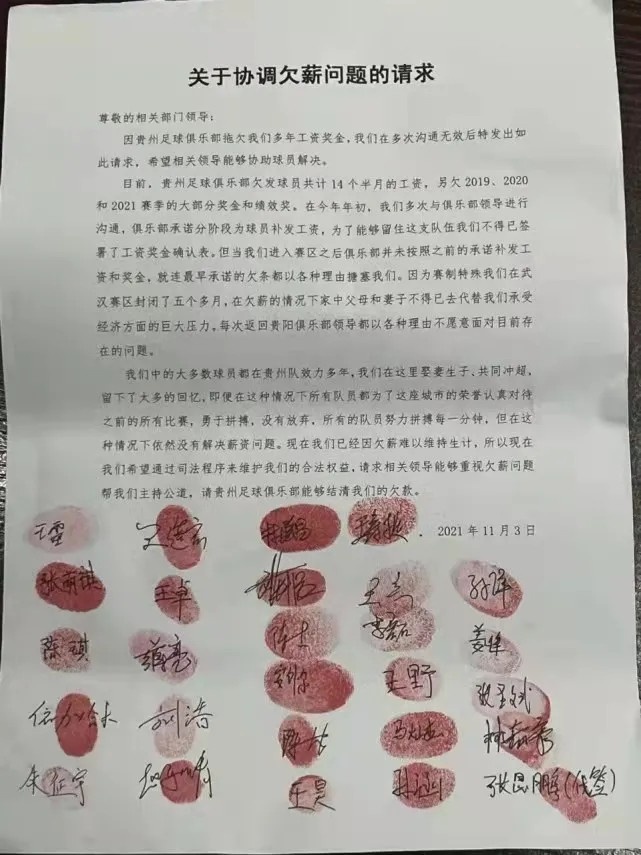 关于协调欠薪问题的请求
尊敬的相关部门领导:
因贵州足球俱乐部拖欠我们多年工资奖金,我们在多次沟通无效后特发出如
此请求,希望相关领导能够协助球员解决。
目前,贵州足球俱乐部欠发球员共计14个半月的工资,另欠2019、2020
和2021赛季的大部分奖金和绩效奖。在今年年初,我们多次与俱乐部领导进行
沟通,俱乐部承诺分阶段为球员补发工资,为了能够留住这支队伍我们不得已签
署了工资奖金确认表。但当我们进入赛区之后俱乐部并未按照之前的承诺补发工
资和奖金,就连最早承诺的欠条都以各种理由搪塞我们。因为赛制特殊我们在武
汉赛区封闭了五个多月,在欠薪的情况下家中父母和妻子不得已去代替我们承受
经济方面的巨大压力。每次返回贵阳俱乐部领导都以各种理由不愿意面对目前存
在的问题。
我们中的大多数球员都在贵州队效力多年,我们在这里娶妻生子、共同冲超,
留下了太多的回忆,即便在这种情况下所有队员都为了这座城市的荣誉认真对待
之前的所有比赛,勇于拼搏,没有放弃,所有的队员努力拼搏每一分钟,但在这
种情况下依然没有解决薪资问题。现在我们已经因欠薪难以维持生计,所以现在
我们希望通过司法程序来维护我们的合法权益,请求相关领导能够重视欠薪问题
帮我们主持公道,请贵州足球俱乐部能够结清我们的欠款。
2021年11月3日
王卓
陈琪
王野
刘浩
朱征宇 王昊 张昆鹏(代签)